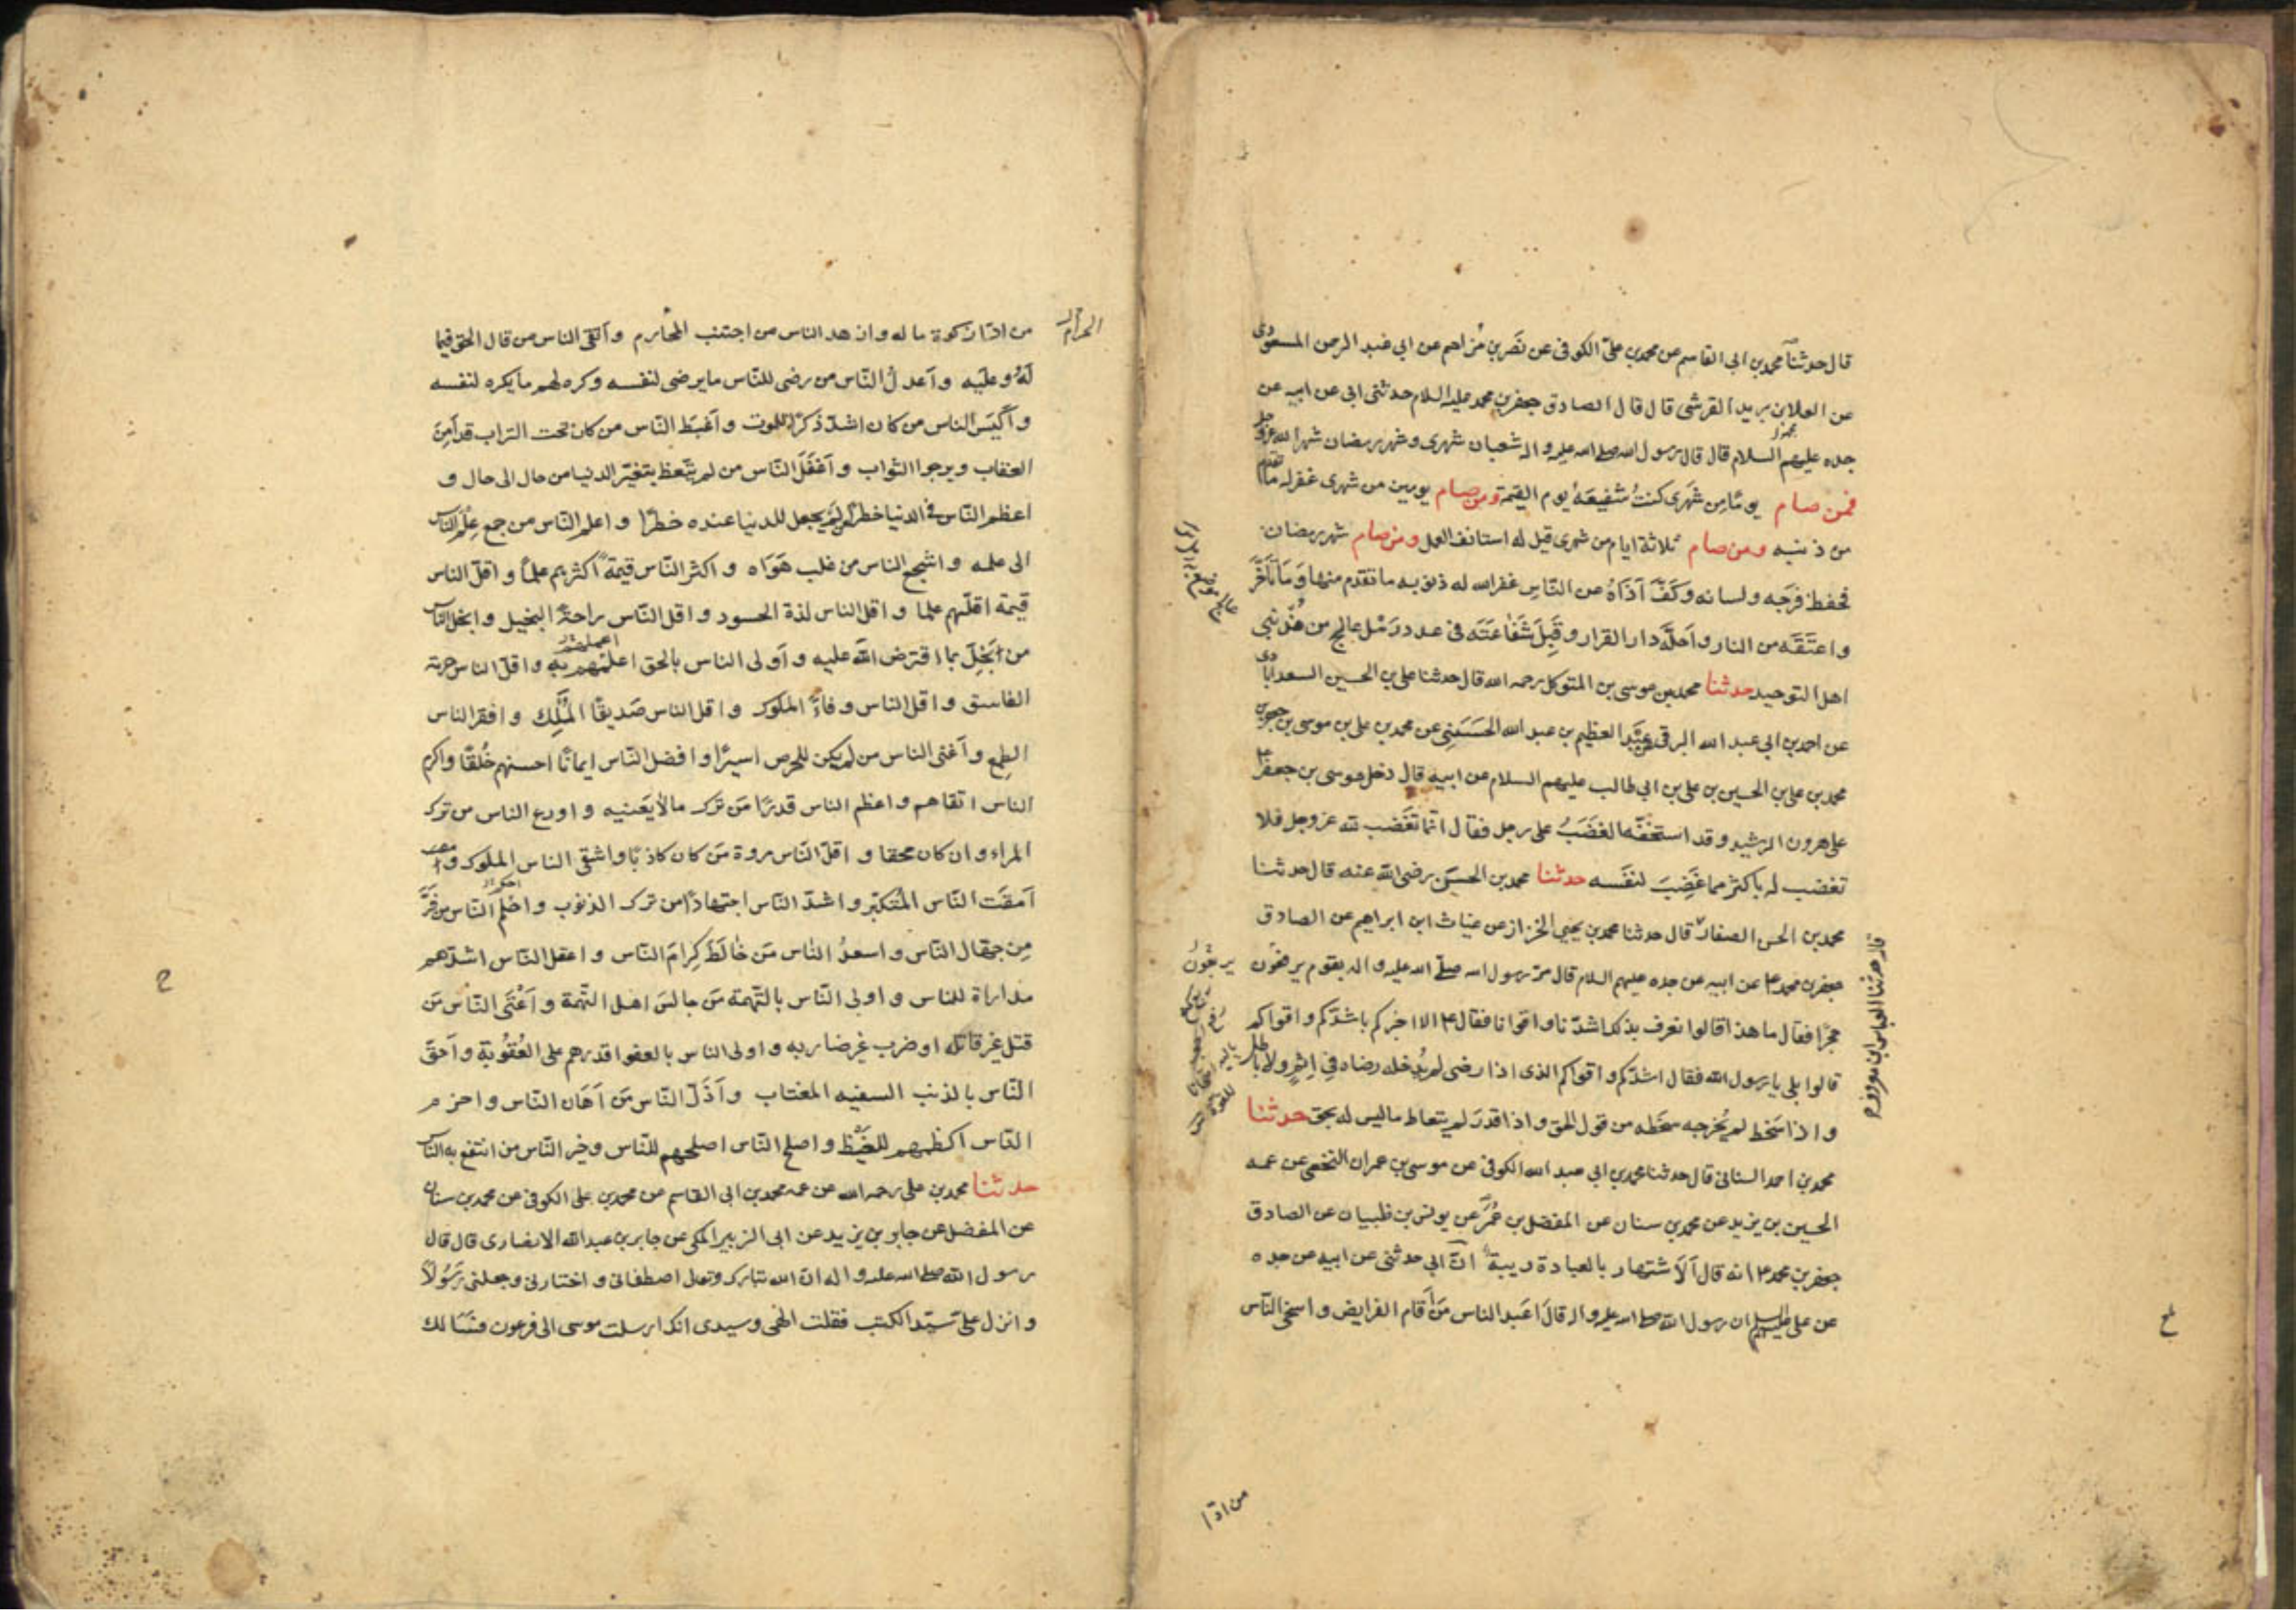 قال حدثنا محمد بن ابى القاسم عن محمد بن على الكوفى عن نصر بن مزاحم عن ابى عبد الرحمن المسعودى
عن العلا بن يزيد القرشى قال قال الصادق جعفر بن محمد عليه السلام حدثنى ابى عن ابيه عن
جده عليهم السلام قال قال رسول الله صلى الله عليه واله شعبان شهرى وشهر رمضان شهر الله عز وجل
فمن صام يوما من شهرى كنت شفيعه يوم القيمة ومن صام يومين من شهرى غفر له ما تقدم
من ذنبه ومن صام ثلاثة ايام من شهرى قيل له استانف العمل ومن صام شهر رمضان
فحفظ فرجه ولسانه وكف آذاه عن الناس غفر الله له ذنوبه ما تقدم منها وما تأخر
واعتقه من النار واحله دار القرار وقبل شفاعته فى عدد رمل عالج من مذنبى
اهل التوحيد حدثنا محمد بن موسى بن المتوكل رحمه الله قال حدثنا على بن الحسين السعدابادى
عن احمد بن ابى عبد الله البرقى عن عبد العظيم بن عبد الله الحسنى عن محمد بن على بن موسى بن جعفر بن
محمد بن على بن الحسين بن على بن ابى طالب عليهم السلام عن ابيه قال دخل موسى بن جعفر ع
على هرون الرشيد وقد استخفه الغضب على رجل فقال انما تغضب لله عز وجل فلا
تغضب له باكثر مما غضب لنفسه حدثنا محمد بن الحسن رضى الله عنه قال حدثنا
محمد بن الحسن الصفار قال حدثنا محمد بن يحيى الخزاز عن غياث ابن ابراهيم عن الصادق
جعفر بن محمد ع عن ابيه عن جده عليهم السلام قال مر رسول الله صلى الله عليه واله بقوم يرفعون
حجرا فقال ما هذا قالوا نعرف بذلك اشدنا واقوانا فقال ع الا اخبركم باشدكم واقواكم
قالوا بلى يا رسول الله فقال اشدكم واقواكم الذى اذا رضى لم يدخله رضاه فى اثم ولا باطل
واذا سخط لم يخرجه سخطه من قول الحق واذا قدر لم يتعاط ما ليس له بحق حدثنا
محمد بن احمد السنانى قال حدثنا محمد بن ابى عبد الله الكوفى عن موسى بن عمران النخعى عن عمه
الحسين بن يزيد عن محمد بن سنان عن المفضل بن عمر عن يونس بن ظبيان عن الصادق
جعفر بن محمد ع انه قال الاشتهار بالعبادة ريبة ان ابى حدثنى عن ابيه عن جده
عن على عليهم السلم ان رسول الله صلى الله عليه واله قال اعبد الناس من اقام الفرايض واسخى الناس
من ادا
من ادا زكوة ماله وازهد الناس من اجتنب المحارم واتقى الناس من قال الحق فيما
له وعليه واعدل الناس من رضى للناس ما يرضى لنفسه وكره لهم ما يكره لنفسه
واكيس الناس من كان اشد ذكرا للموت واغبط الناس من كان تحت التراب قد آمن
العقاب ويرجوا الثواب واغفل الناس من لم يتعظ بتغير الدنيا من حال الى حال و
اعظم الناس فى الدنيا خطرا من لم يجعل للدنيا عنده خطرا واعلم الناس من جمع علم الناس
الى علمه واشجع الناس من غلب هواه واكثر الناس قيمة اكثرهم علما واقل الناس
قيمة اقلهم علما واقل الناس لذة الحسود واقل الناس راحة البخيل وابخل الناس
من بخل بما افترض الله عليه واولى الناس بالحق اعلمهم به واقل الناس حرمة
الفاسق واقل الناس وفاء الملوك واقل الناس صديقا الملك وافقر الناس
الطمع واغنى الناس من لم يكن للحرص اسيرا وافضل الناس ايمانا احسنهم خلقا واكرم
الناس اتقاهم واعظم الناس قدرا من ترك ما لا يعنيه واورع الناس من ترك
المراء وان كان محقا واقل الناس مروة من كان كاذبا واشقى الناس الملوك و
امقت الناس المتكبر واشد الناس اجتهادا من ترك الذنوب واحلم الناس من فر
من جهال الناس واسعد الناس من خالط كرام الناس واعقل الناس اشدهم
مداراة للناس واولى الناس بالتهمة من جالس اهل التهمة واعتى الناس من
قتل غير قاتله او ضرب غير ضاربه واولى الناس بالعفو اقدرهم على العقوبة واحق
الناس بالذنب السفيه المغتاب واذل الناس من اهان الناس واحزم
الناس اكظمهم للغيظ واصلح الناس اصلحهم للناس وخير الناس من انتفع به الناس
حدثنا محمد بن على رحمه الله عن عمه محمد بن ابى القاسم عن محمد بن على الكوفى عن محمد بن سنان
عن المفضل عن جابر بن يزيد عن ابى الزبير المكى عن جابر بن عبد الله الانصارى قال قال
رسول الله صلى الله عليه واله ان الله تبارك وتعالى اصطفانى واختارنى وجعلنى رسولا
وانزل على سيد الكتب فقلت الهى وسيدى انك ارسلت موسى الى فرعون فسالك